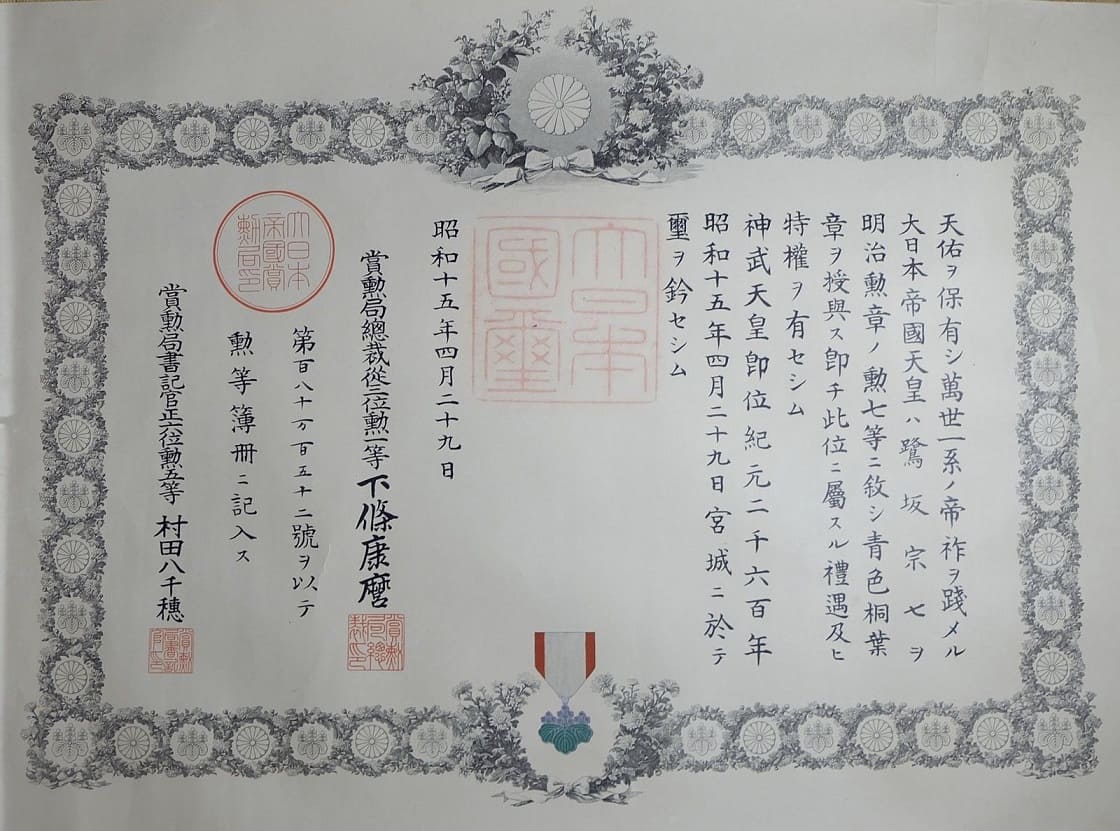 天佑ヲ保有シ萬世一系ノ帝祚ヲ踐メル
大日本帝國天皇ハ鷺坂宗七ヲ
明治勲章ノ勲七等ニ敘シ青色桐葉
章ヲ授與ス卽チ此位ニ屬スル禮遇及ヒ
特權ヲ有セシム
神武天皇卽位紀元二千六百年
昭和十五年四月二十九日宮城ニ於テ
璽ヲ鈐セシム
大日本
國璽
昭和十五年四月二十九日
賞勲局總裁從三位勲一等下條康麿
賞勲局總裁印
第百八十一万百五十二號ヲ以テ
勲等簿册ニ記入ス
大日本
帝國賞
勲局印
賞勲局書記官正六位勲五等村田八千穗